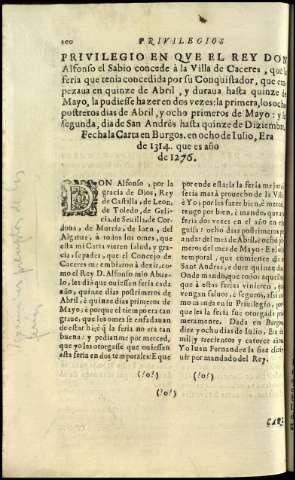 200 PRIVILEGIOS
PRIVILEGIO EN QVE EL REY DON
Alfonso el Sabio concede à la Villa de Caceres, que la
feria que tenia concedida por su Conquistador, que em-
pezaua en quinze de Abril, y duraua hasta quinze de
Mayo, la pudiesse hazer en dos vezes: la primera, los ocho
postreros dias de Abril, y ocho primeros de Mayo: y la
segunda, dia de San Andrès hasta quinze de Diziembre.
Fecha la Carta en Burgos, en ocho de Iulio, Era
de 1314. que es año
de 1276.
DON Alfonso, por la
gracia de Dios, Rey
de Castilla, de Leon,
de Toledo, de Gali-
cia, de Seuilla, de Cor-
doua, de Murcia, de Iaen, del
Algarue, à todos los omes, que
esta mi Carta vieren salud, y gra-
cia: sepades, que el Concejo de
Caceres me embiaron à dezir, co-
mo el Rey D. Alfonso mio Abue-
lo, les diò que ouiessen feria cada
año, quinze dias postrimeros de
Abril, è quinze dias primeros de
Mayo; è porque el tiempo era tan
graue, que los omes se enfadauan
de estar hi, è q̃ la feria no era tan
buena: y pedianme por merced,
que yo les otorgasse que ouiessen
esta feria en dos temporales: E que
por ende estarìa la feria mejor,
è Yo; por les fazer bien, è merced,
tengo por bien, è mando, que la
feria dos vezes en el año en esta
guisa: ocho dias postrimeros
andar del mes de Abril, è ocho pri-
meros del mes de Mayo: E el otro
temporal, que comience dia de
Sant Andres, è dure quinze dias:
Onde mando, que todos aquellos
que à estas ferias vinieren, que
vengan saluos, è seguros, assi co-
mo mandaua en su Priuilegio, por
que les fue otorgada pri-
meramente. Dada en Burgos
diez y ocho dias de Iulio, Era de
mil y trecientos y catorze años.
Yo Iuan Fernandez la fize escri-
uir por mandado del Rey.
(?o?) (?o?)
(?o?)